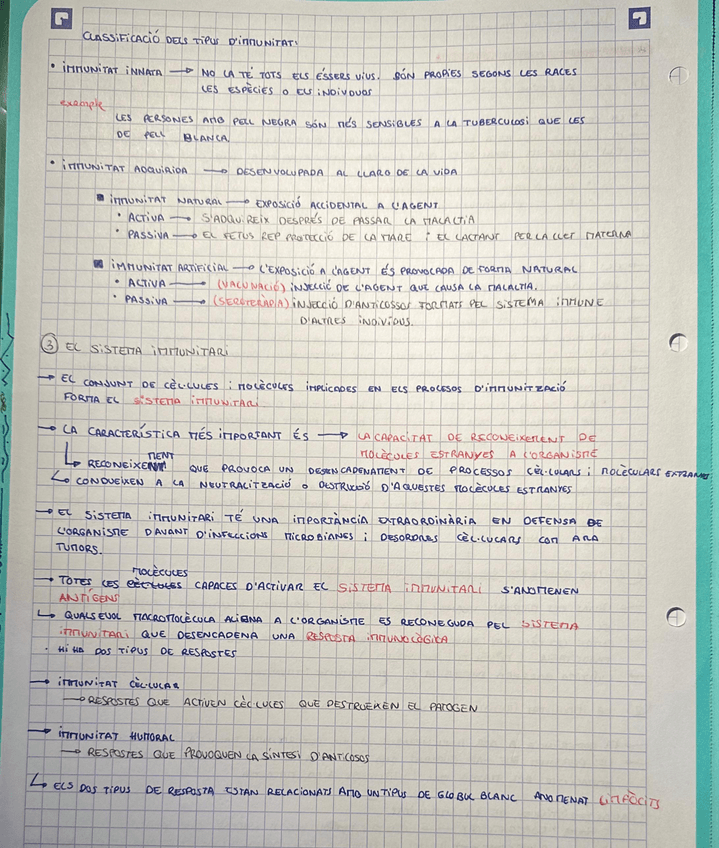 CLASSIFICACIÓ DELS TIPUS D'IMMUNITAT:
• IMMUNITAT INNATA → NO LA TÉ TOTS ELS ÉSSERS VIUS. SÓN PROPIES SEGONS LES RACES
LES ESPÈCIES O ELS INDIVIDUOS
exemple
LES PERSONES AMB PELL NEGRA SÓN MÉS SENSIBLES A LA TUBERCULOSI QUE LES
DE PELL BLANCA.
• IMMUNITAT ADQUIRIDA → DESENVOLUPADA AL LLARG DE LA VIDA
■ IMMUNITAT NATURAL → EXPOSICIÓ ACCIDENTAL A L'AGENT
• ACTIVA → S'ADQUIREIX DESPRÉS DE PASSAR LA MALALTIA
• PASSIVA → EL FETUS REP PROTECCIÓ DE LA MARE I EL LACTANT PER LA LLET MATERNA
■ IMMUNITAT ARTIFICIAL → L'EXPOSICIÓ A L'AGENT ÉS PROVOCADA DE FORMA NATURAL
• ACTIVA → (VACUNACIÓ) INJECCIÓ DE L'AGENT QUE CAUSA LA MALALTIA.
• PASSIVA → (SEROTERÀPIA) INJECCIÓ D'ANTICOSSOS FORMATS PEL SISTEMA IMMUNE
D'ALTRES INDIVIDUS.
③ EL SISTEMA IMMUNITARI
→ EL CONJUNT DE CÈL·LULES I MOLÈCULES IMPLICADES EN ELS PROCESOS D'IMMUNITZACIÓ
FORMA EL SISTEMA IMMUNITARI
→ LA CARACTERÍSTICA MÉS IMPORTANT ÉS → LA CAPACITAT DE RECONEIXEMENT DE
MOLÈCULES ESTRANYES A L'ORGANISME
MENT
↳ RECONEIXE QUE PROVOCA UN DESENCADENAMENT DE PROCESSOS CÈL·LULARS I MOLÈCULARS EXTRANYS
↳ CONDUEIXEN A LA NEUTRALITZACIÓ O DESTRUCCIÓ D'AQUESTES MOLÈCULES ESTRANYES
→ EL SISTEMA IMMUNITARI TÉ UNA IMPORTÀNCIA EXTRAORDINÀRIA EN DEFENSA DE
L'ORGANISME D'AVANT D'INFECCIONS MICROBIANES I DESORDRES CÈL·LULARS COM ARA
TUMORS.
MOLÈCULES
→ TOTES LES CÈL·LULES CAPACES D'ACTIVAR EL SISTEMA IMMUNITARI S'ANOMENEN
ANTÍGENS
↳ QUALSEVOL MACROMOLÈCULA ALIENA A L'ORGANISME ES RECONEGUDA PEL SISTEMA
IMMUNITARI QUE DESENCADENA UNA RESPOSTA IMMUNOLÒGICA
• HI HA DOS TIPUS DE RESPOSTES
→ IMMUNITAT CÈL·LULAR
→ RESPOSTES QUE ACTIVEN CÈL·LULES QUE DESTRUEIXEN EL PATOGEN
→ IMMUNITAT HUMORAL
→ RESPOSTES QUE PROVOQUEN LA SÍNTESI D'ANTICOSOS
↳ ELS DOS TIPUS DE RESPOSTA ESTAN RELACIONATS AMB UN TIPUS DE GLOBUL BLANC ANOMENAT LIMFÒCITS